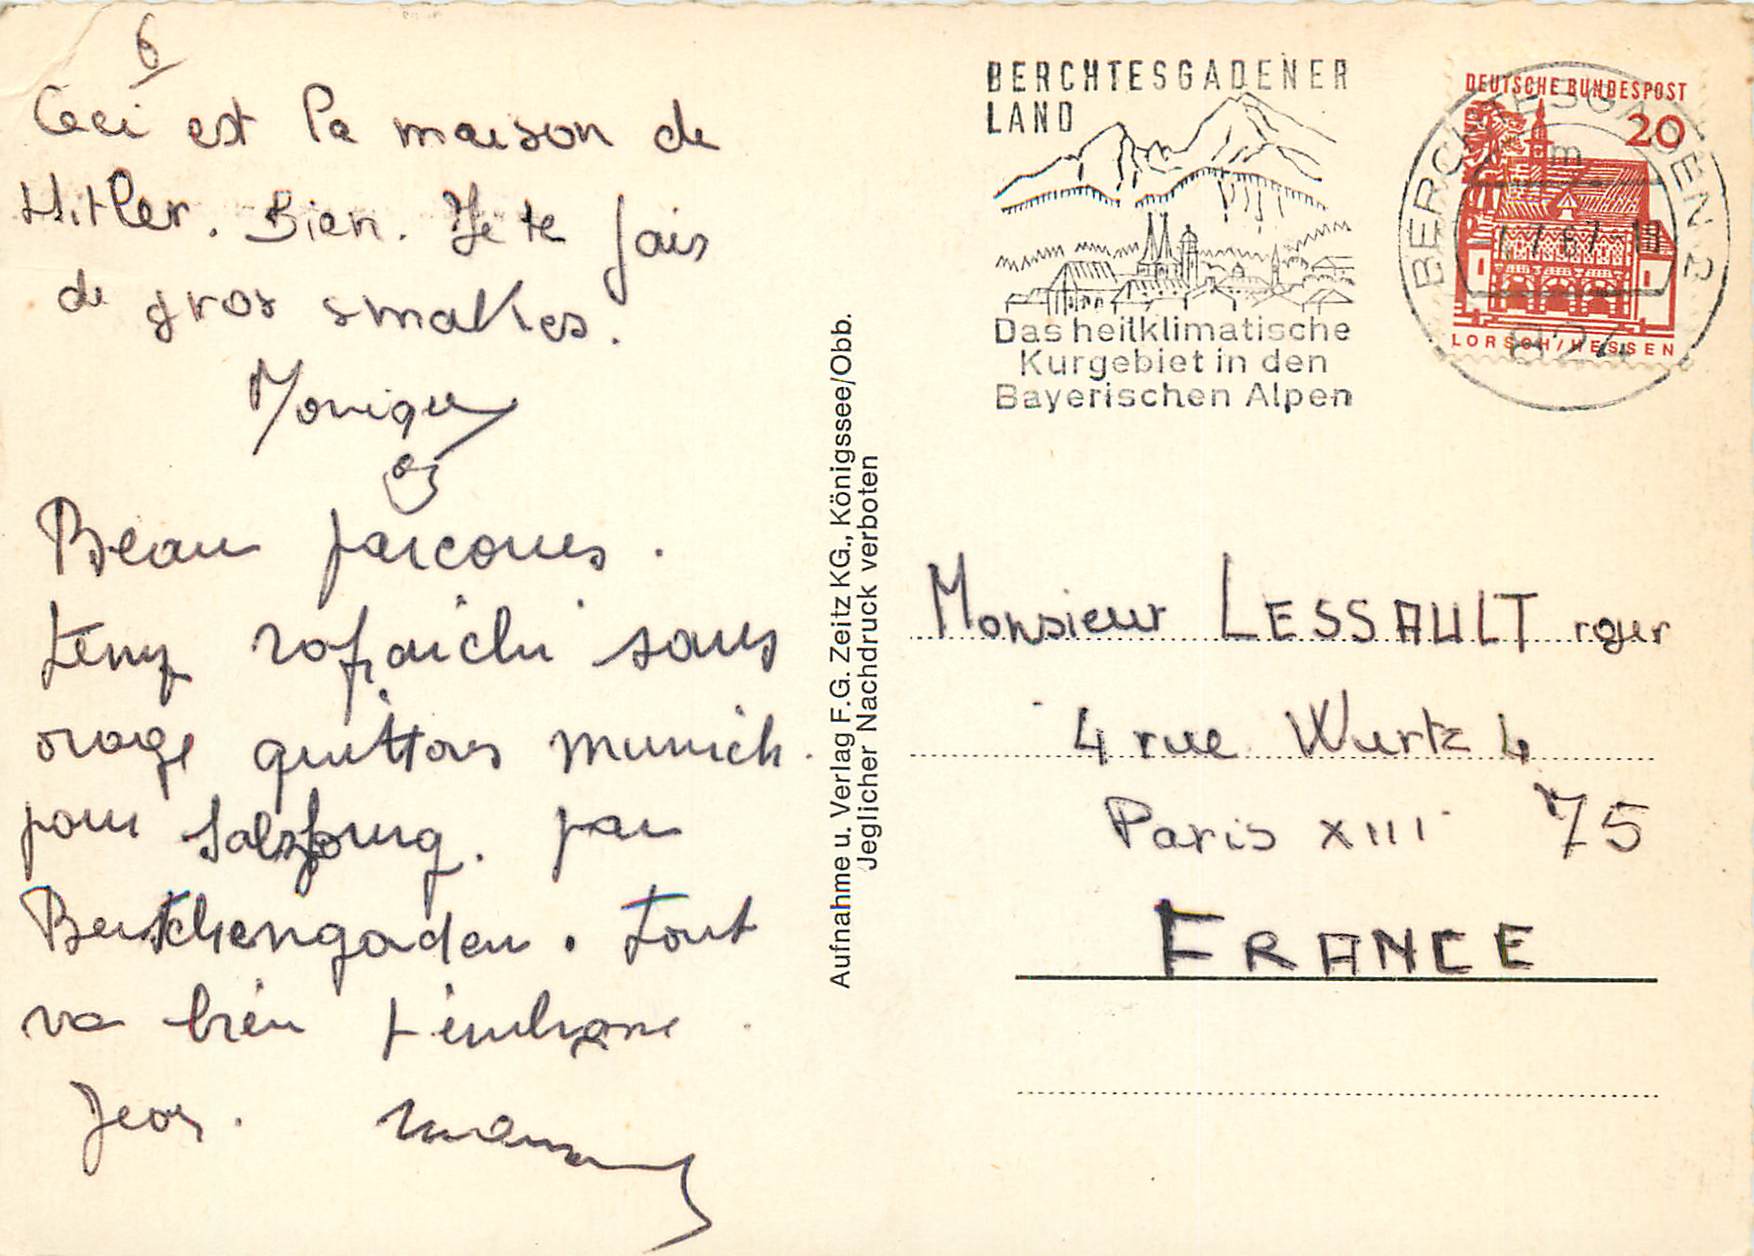 6
Ceci est la maison de
Hitler. Bien. Je te fais
de gros smakes.
Monique
Beau parcours.
temps rafraichi sans
orage quittons munich
pour Salzbourg. par
Berchtengaden. tout
va bien t'embrasse
Jean. maman
Aufnahme u. Verlag F.G. Zeitz KG., Königssee/Obb.
Jeglicher Nachdruck verboten
BERCHTESGADENER
LAND
Das heilklimatische
Kurgebiet in den
Bayerischen Alpen
DEUTSCHE BUNDESPOST
20
LORSCH/HESSEN
BERCHTESGADEN 2
m
7.67-18
824
Monsieur LESSAULT roger
4 rue Wurtz 4
Paris XIII 75
FRANCE